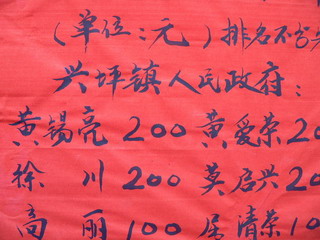 (单位:元)排名不分
兴坪镇人民政府:
黄锡亮 200 黄爱荣 20
徐 川 200 莫启兴 20
高 丽 100 清荣 10